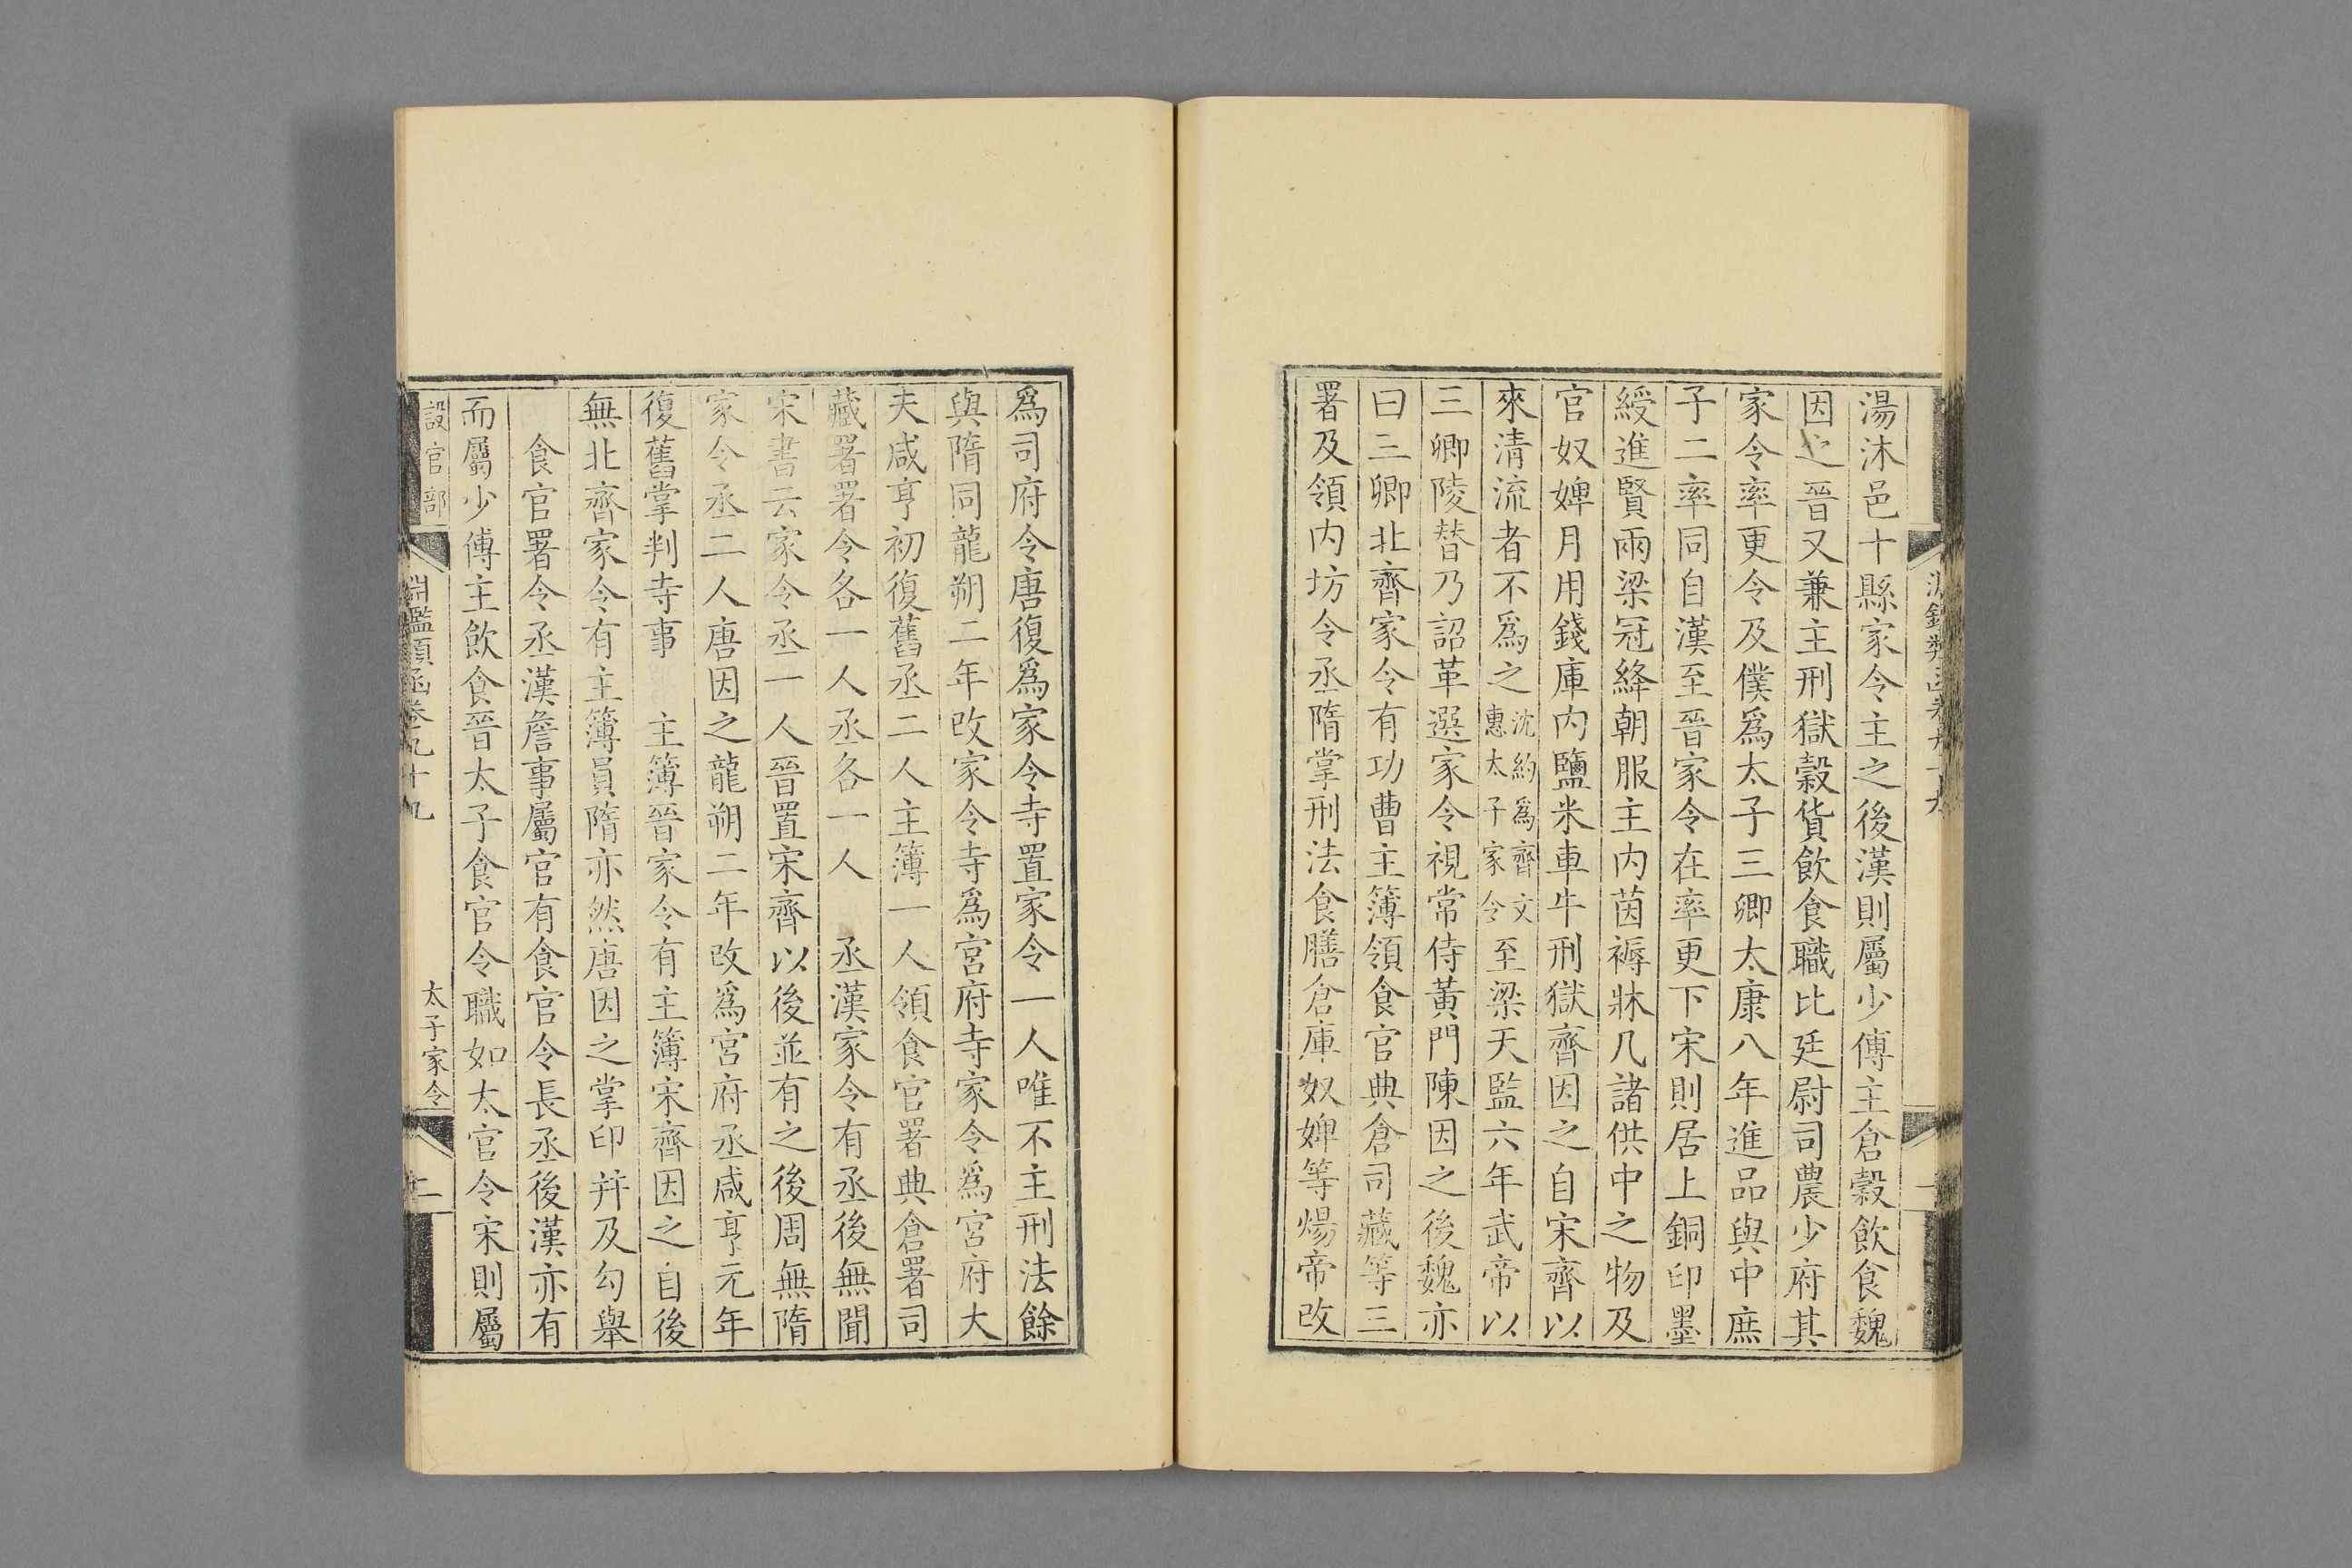 湯沐邑十縣家令主之後漢則屬少傅主倉穀飲食魏
因之晉又兼主刑獄穀貨飲食職比廷尉司農少府其
家令率更令及僕爲太子三卿太康八年進品與中庶
子二率同自漢至晉家令在率更下宋則居上銅印墨
綬進賢兩梁冠絳朝服主內茵褥牀几諸供中之物及
官奴婢月用錢庫內鹽米車牛刑獄齊因之自宋齊以
來清流者不爲之沈約爲齊文惠太子家令至梁天監六年武帝以
三卿陵替乃詔革選家令視常侍黃門陳因之後魏亦
曰三卿北齊家令有功曹主簿領食官典倉司藏等三
署及領內坊令丞隋掌刑法食膳倉庫奴婢等煬帝改
爲司府令唐復爲家令寺置家令一人唯不主刑法餘
與隋同龍朔二年改家令寺爲宮府寺家令爲宮府大
夫咸亨初復舊丞二人主簿一人領食官署典倉署司
藏署署令各一人丞各一人　丞漢家令有丞後無聞
宋書云家令丞一人晉置宋齊以後並有之後周無隋
家令丞二人唐因之龍朔二年改爲宮府丞咸亨元年
復舊掌判寺事　主簿晉家令有主簿宋齊因之自後
無北齊家令有主簿員隋亦然唐因之掌印幷及勾舉
食官署令丞漢詹事屬官有食官令長丞後漢亦有
而屬少傅主飲食晉太子食官令職如太官令宋則屬
設官部
淵鑑類函卷九十九
太子家令
二